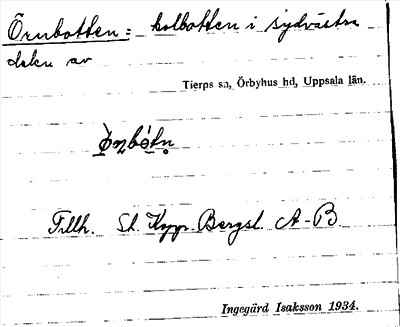 Örnbotten: kolbotten i sydvästra
delen av
Tierps sn, Örbyhus hd, Uppsala län.
Tillh. St. Kopp. Bergsl. A-B
Ingegärd Isaksson 1934.